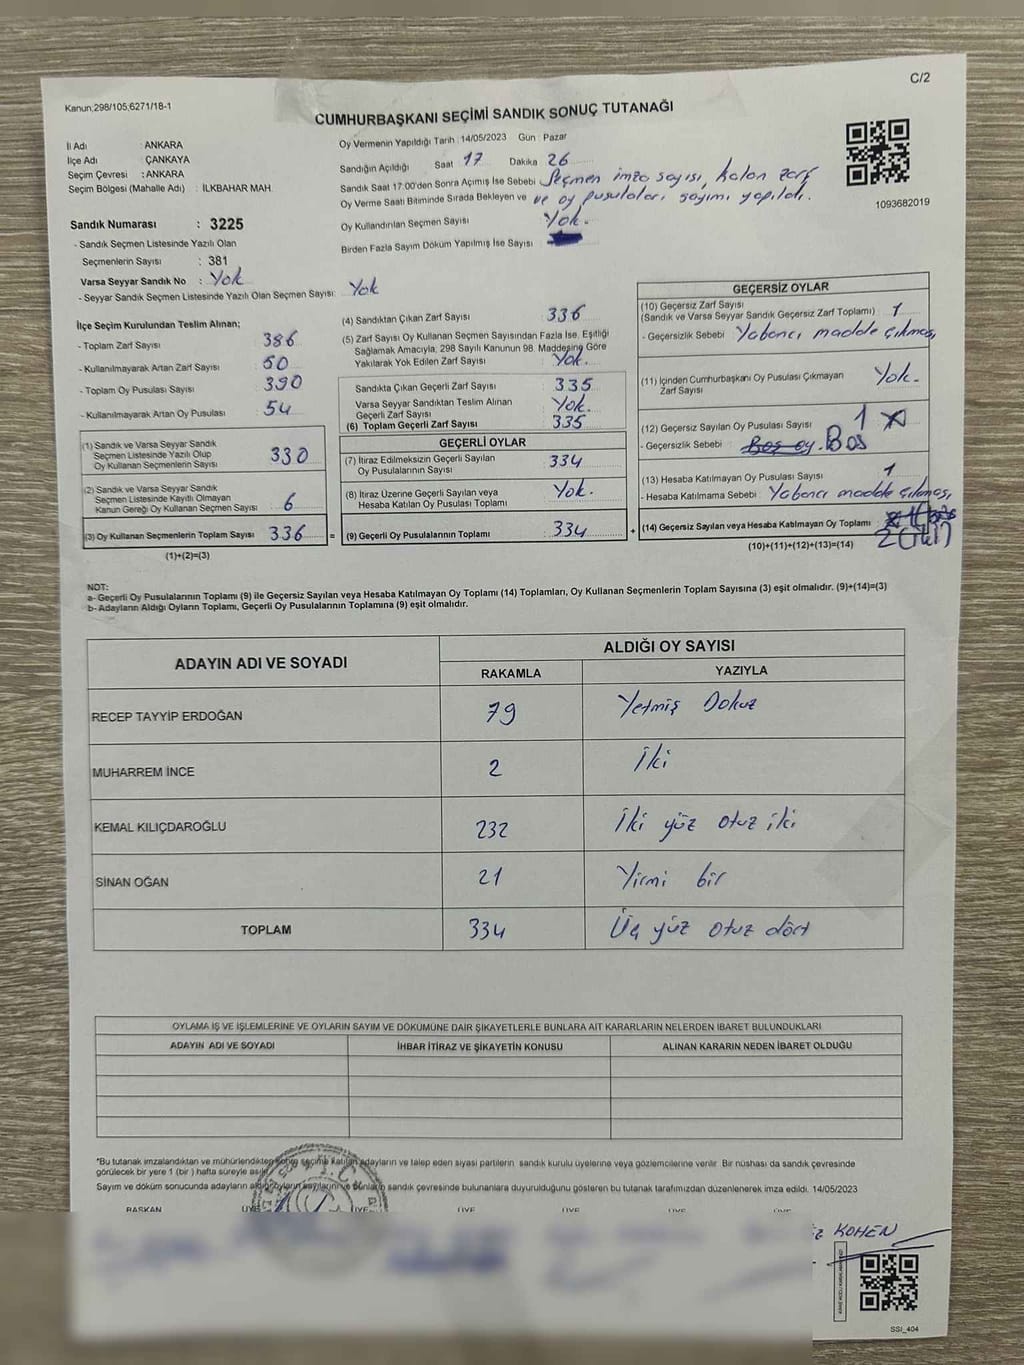 C/2
Kanun;298/105,6271/18-1
CUMHURBAŞKANI SEÇİMİ SANDIK SONUÇ TUTANAĞI
İl Adı : ANKARA
İlçe Adı : ÇANKAYA
Seçim Çevresi : ANKARA
Seçim Bölgesi (Mahalle Adı) : İLKBAHAR MAH.
Sandık Numarası : 3225
- Sandık Seçmen Listesinde Yazılı Olan
Seçmenlerin Sayısı : 381
Varsa Seyyar Sandık No : Yok
- Seyyar Sandık Seçmen Listesinde Yazılı Olan Seçmen Sayısı: Yok
Oy Vermenin Yapıldığı Tarih : 14/05/2023 Gün : Pazar
Sandığın Açıldığı Saat 17 Dakika 26
Sandık Saat 17:00'den Sonra Açımış İse Sebebi Seçmen imza sayısı, kalan zarf
Oy Verme Saati Bitiminde Sırada Bekleyen ve ve oy pusulaları sayımı yapıldı.
Oy Kullandırılan Seçmen Sayısı Yok.
Birden Fazla Sayım Döküm Yapılmış İse Sayısı
1093682019
İlçe Seçim Kurulundan Teslim Alınan;
- Toplam Zarf Sayısı : 386
- Kullanılmayarak Artan Zarf Sayısı : 50
- Toplam Oy Pusulası Sayısı : 390
- Kullanılmayarak Artan Oy Pusulası : 54
(1) Sandık ve Varsa Seyyar Sandık
Seçmen Listesinde Yazılı Olup
Oy Kullanan Seçmenlerin Sayısı 330
(2) Sandık ve Varsa Seyyar Sandık
Seçmen Listesinde Kayıtlı Olmayan
Kanun Gereği Oy Kullanan Seçmen Sayısı 6
(3) Oy Kullanan Seçmenlerin Toplam Sayısı 336 =
(1)+(2)=(3)
(4) Sandıktan Çıkan Zarf Sayısı 336
(5) Zarf Sayısı Oy Kullanan Seçmen Sayısından Fazla İse, Eşitliği
Sağlamak Amacıyla, 298 Sayılı Kanunun 98. Maddesine Göre
Yakılarak Yok Edilen Zarf Sayısı Yok.
Sandıkta Çıkan Geçerli Zarf Sayısı 335
Varsa Seyyar Sandıktan Teslim Alınan
Geçerli Zarf Sayısı Yok.
(6) Toplam Geçerli Zarf Sayısı 335
GEÇERLİ OYLAR
(7) İtiraz Edilmeksizin Geçerli Sayılan
Oy Pusulalarının Sayısı 334
(8) İtiraz Üzerine Geçerli Sayılan veya
Hesaba Katılan Oy Pusulası Toplamı Yok.
(9) Geçerli Oy Pusulalarının Toplamı 334 +
GEÇERSİZ OYLAR
(10) Geçersiz Zarf Sayısı
(Sandık ve Varsa Seyyar Sandık Geçersiz Zarf Toplamı) 1
- Geçersizlik Sebebi Yabancı madde çıkması
(11) İçinden Cumhurbaşkanı Oy Pusulası Çıkmayan
Zarf Sayısı Yok.
(12) Geçersiz Sayılan Oy Pusulası Sayısı 1
- Geçersizlik Sebebi : Boş oy. Boş
(13) Hesaba Katılmayan Oy Pusulası Sayısı 1
- Hesaba Katılmama Sebebi : Yabancı madde çıkması,
(14) Geçersiz Sayılan veya Hesaba Katılmayan Oy Toplamı :
(10)+(11)+(12)+(13)=(14)
NOT:
a- Geçerli Oy Pusulalarının Toplamı (9) ile Geçersiz Sayılan veya Hesaba Katılmayan Oy Toplamı (14) Toplamları, Oy Kullanan Seçmenlerin Toplam Sayısına (3) eşit olmalıdır. (9)+(14)=(3)
b- Adayların Aldığı Oyların Toplamı, Geçerli Oy Pusulalarının Toplamına (9) eşit olmalıdır.
ADAYIN ADI VE SOYADI
ALDIĞI OY SAYISI
RAKAMLA YAZIYLA
RECEP TAYYİP ERDOĞAN 79 Yetmiş Dokuz
MUHARREM İNCE 2 İki
KEMAL KILIÇDAROĞLU 232 İki yüz otuz iki
SİNAN OĞAN 21 Yirmi bir
TOPLAM 334 Üç yüz otuz dört
OYLAMA İŞ VE İŞLEMLERİNE VE OYLARIN SAYIM VE DÖKÜMÜNE DAİR ŞİKAYETLERLE BUNLARA AİT KARARLARIN NELERDEN İBARET BULUNDUKLARI
ADAYIN ADI VE SOYADI İHBAR İTİRAZ VE ŞİKAYETİN KONUSU ALINAN KARARIN NEDEN İBARET OLDUĞU
*Bu tutanak imzalandıktan ve mühürlendikten sonra seçime katılan adayların ve talep eden siyasi partilerin sandık kurulu üyelerine veya gözlemcilerine verilir. Bir nüshası da sandık çevresinde
görülecek bir yere 1 (bir) hafta süreyle asılır.
Sayım ve döküm sonucunda adayların aldığı oyların sayılarını ve bunların sandık çevresinde bulunanlara duyurulduğunu gösteren bu tutanak tarafımızdan düzenlenerek imza edildi. 14/05/2023
BAŞKAN ÜYE ÜYE ÜYE ÜYE ÜYE ÜYE
KOHEN
SSI_404